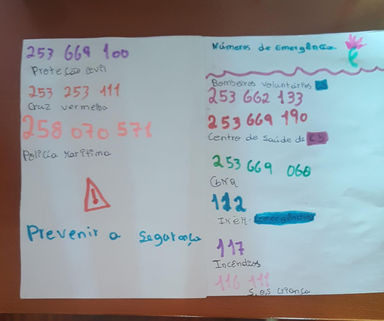 253 669 100
Proteção Civil
253 253 111
Cruz vermelha
258 070 571
Polícia Marítima
Prevenir a Segurança
Números de Emergência
Bombeiros voluntários
253 662 133
253 669 190
Centro de Saúde de
253 669 060
GNR
112
Inem: Emergências
117
Incêndios
116 111
S.O.S Criança